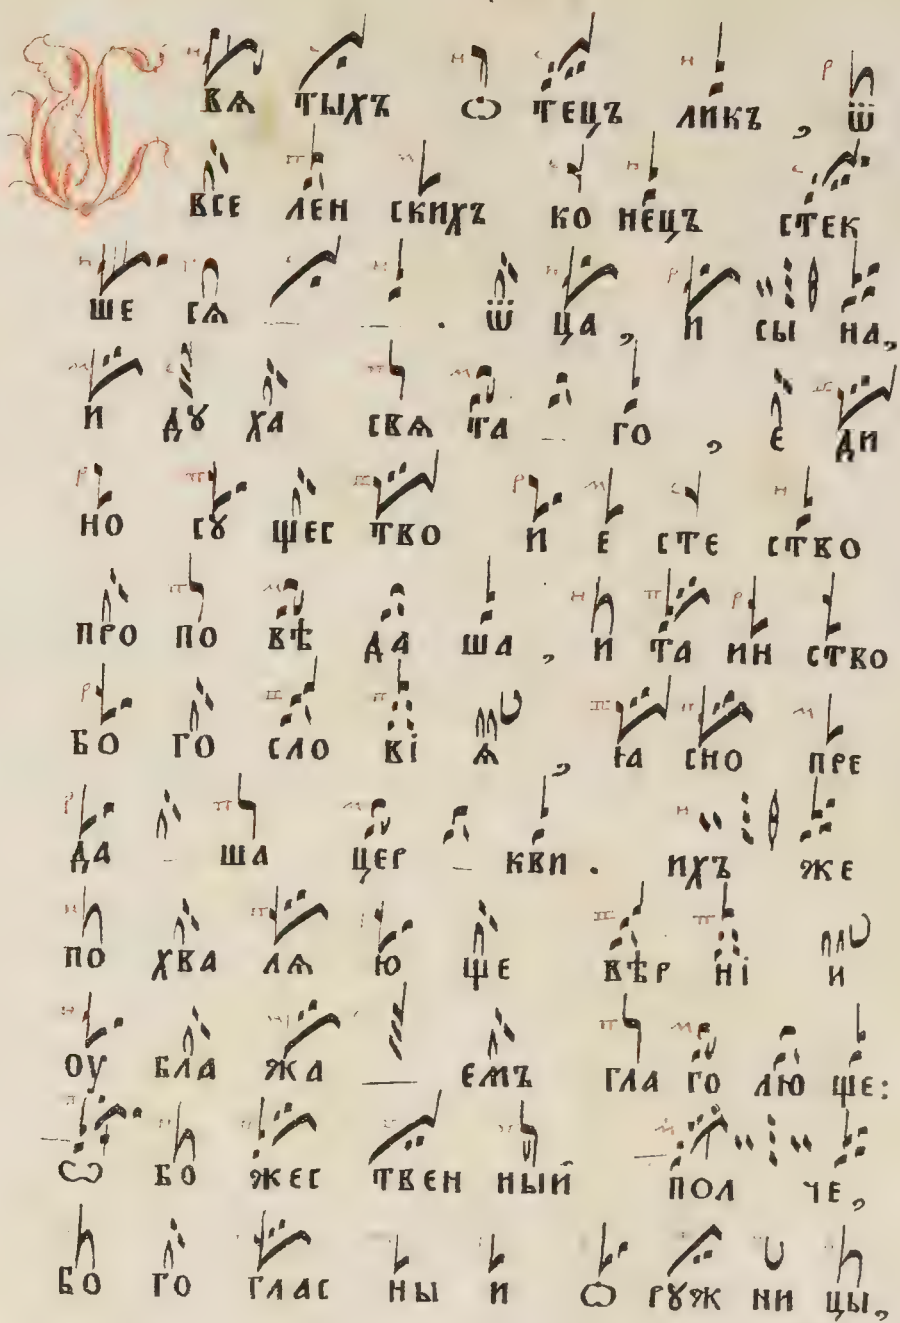 С ВѦ ТЫХЪ Ѡ ТЕЦЪ ЛИКЪ , Ѿ
ВСЕ ЛЕН СКИХЪ КО НЕЦЪ СТЕК
ШЕ СѦ _ _ . Ѿ ЦА , И СЫ НА,
И ДꙊ ХА СВѦ ТА _ ГО , Е ДИ
НО СꙊ ЩЕС ТВО И Е СТЕ СТВО
ПРО ПО ВѢ ДА ША , И ТА ИН СТВО
БО ГО СЛО ВІ Ѧ , ꙖА СНО ПРЕ
ДА _ ША ЦЕР _ КВИ . ИХЪ ЖЕ
ПО ХВА ЛѦ Ю ЩЕ ВѢР НІ И
ОУ БЛА ЖА _ ЕМЪ ГЛА ГО ЛЮ ЩЕ:
Ѡ БО ЖЕС ТВЕН НЫЙ ПОЛ ЧЕ,
БО ГО ГЛАС НЫ И Ѡ РꙊЖ НИ ЦЫ,